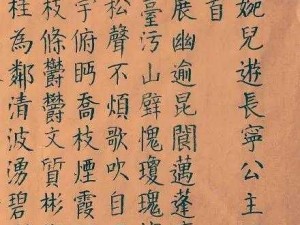 婉兒遊長寧公主
首
展幽逾昆閬邁蓬
臺污山壁愧瓊瑰
松聲不煩歌吹自
宇俯眄喬枝煙霞
枝條欝欝文質彬
桂為鄰清波湧碧